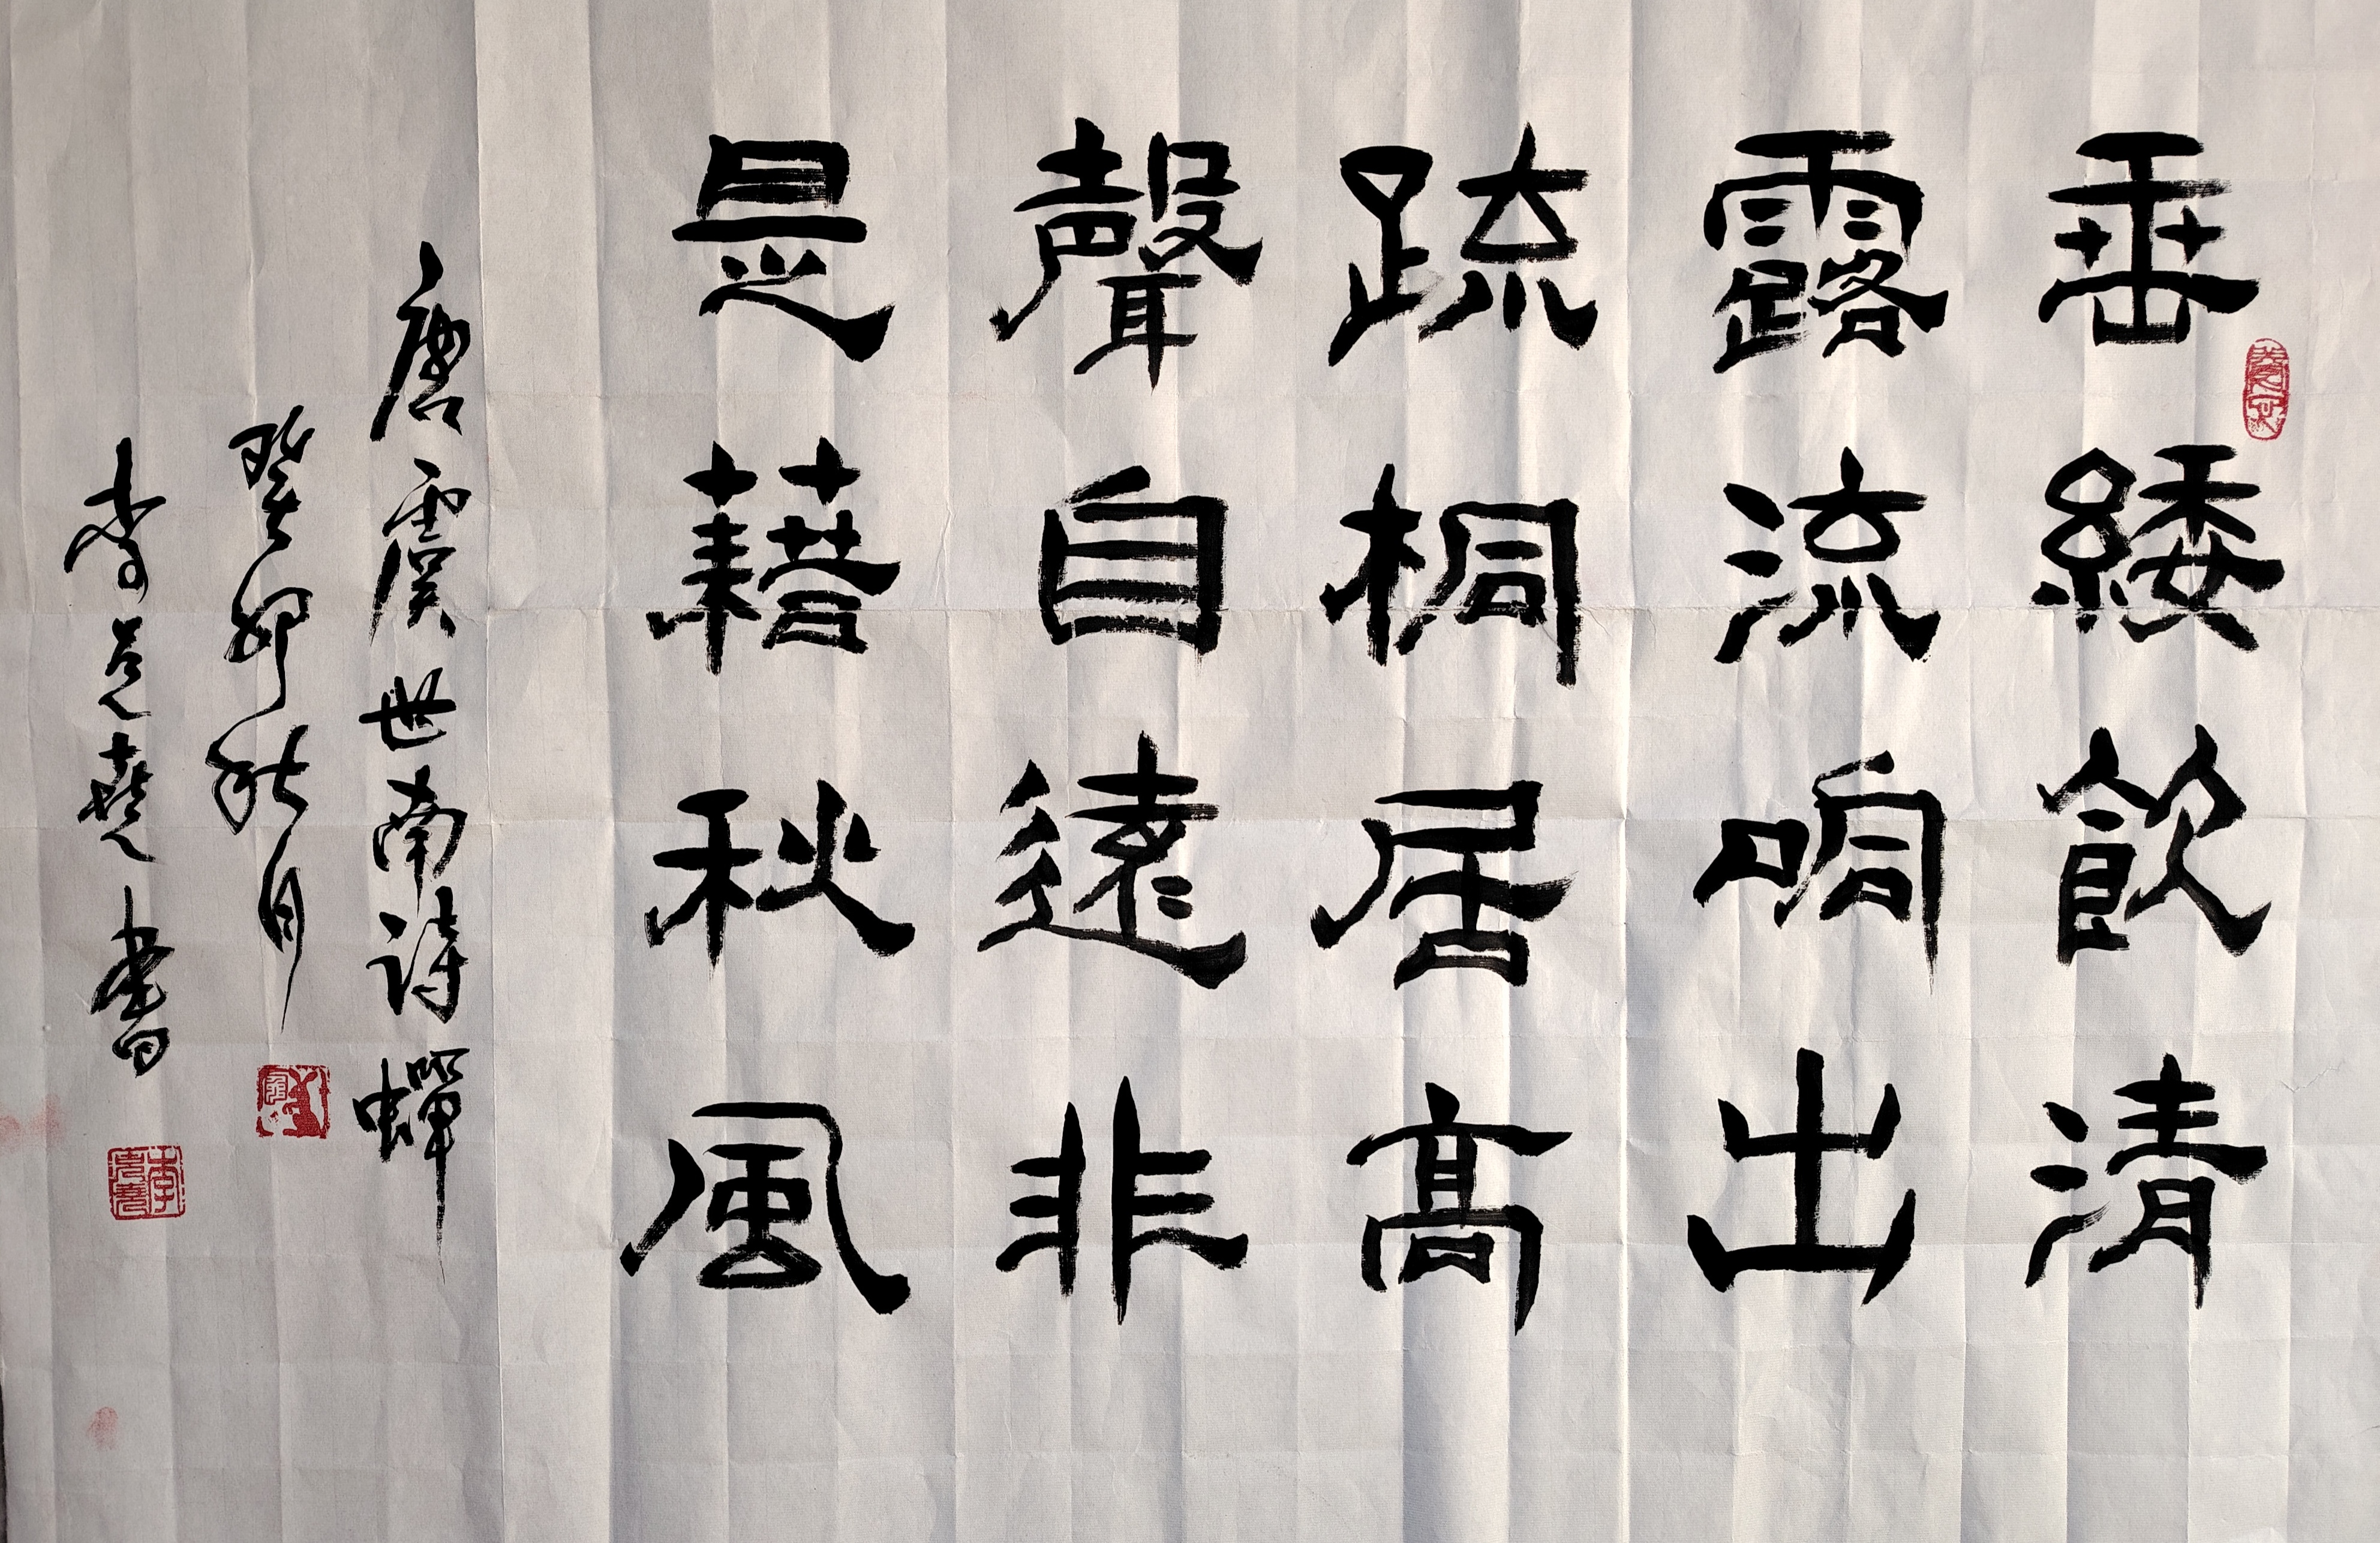 垂緌飲清
露流响出
疏桐居高
聲自遠非
是藉秋風
唐虞世南詩蟬
癸卯秋月
李堯書